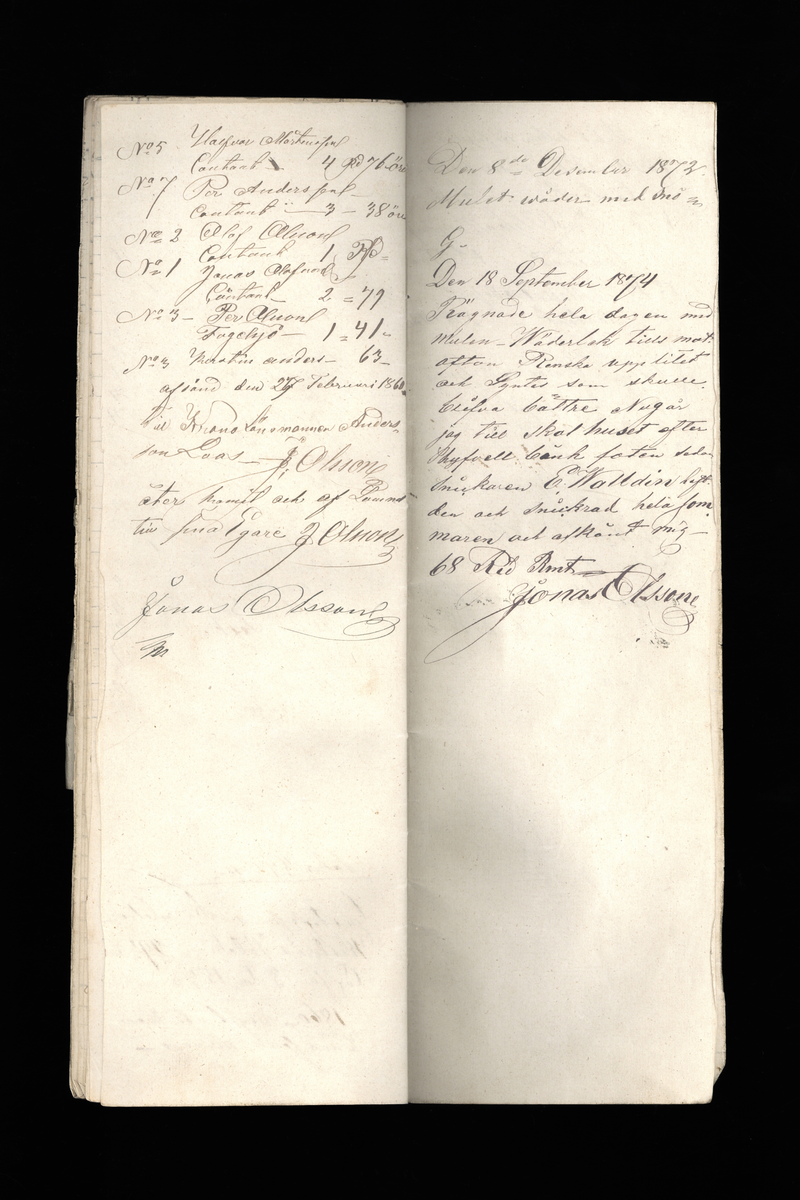 No 5 Halfvar Mårtenson
Contant 4 Rd 76 öre
No 7 Per Anderson
Contant 3 – 38 öre
No 2 Olof Olsson
Contant 1 Rd
No 1 Jonas Olofson
Contant 2 = 79
No 3 – Per Olsson
Fogelsjö – 1 = 41
No 3 Kerstin anders – 63 –
afsänd den 27 Februari 1860
til Krono Länsmannen Anders-
son Loos – J. Olsson
åter komit och af
till sina Egare J Olsson
Jonas Olsson
Den 8de December 1872
Mulet wäder med snö
G
Den 18 September 1874
Rägnade hela dagen med
mulen Wäderlek tils mot
afton Renska upp litet
och Syntes som skulle
blifva bättre Nu går
jag till skol huset efter
sedan
Snickaren E. Walldin
den och Snickrad hela som
maren och afkönt mig –
68 Rd Rmt
Jonas Olsson